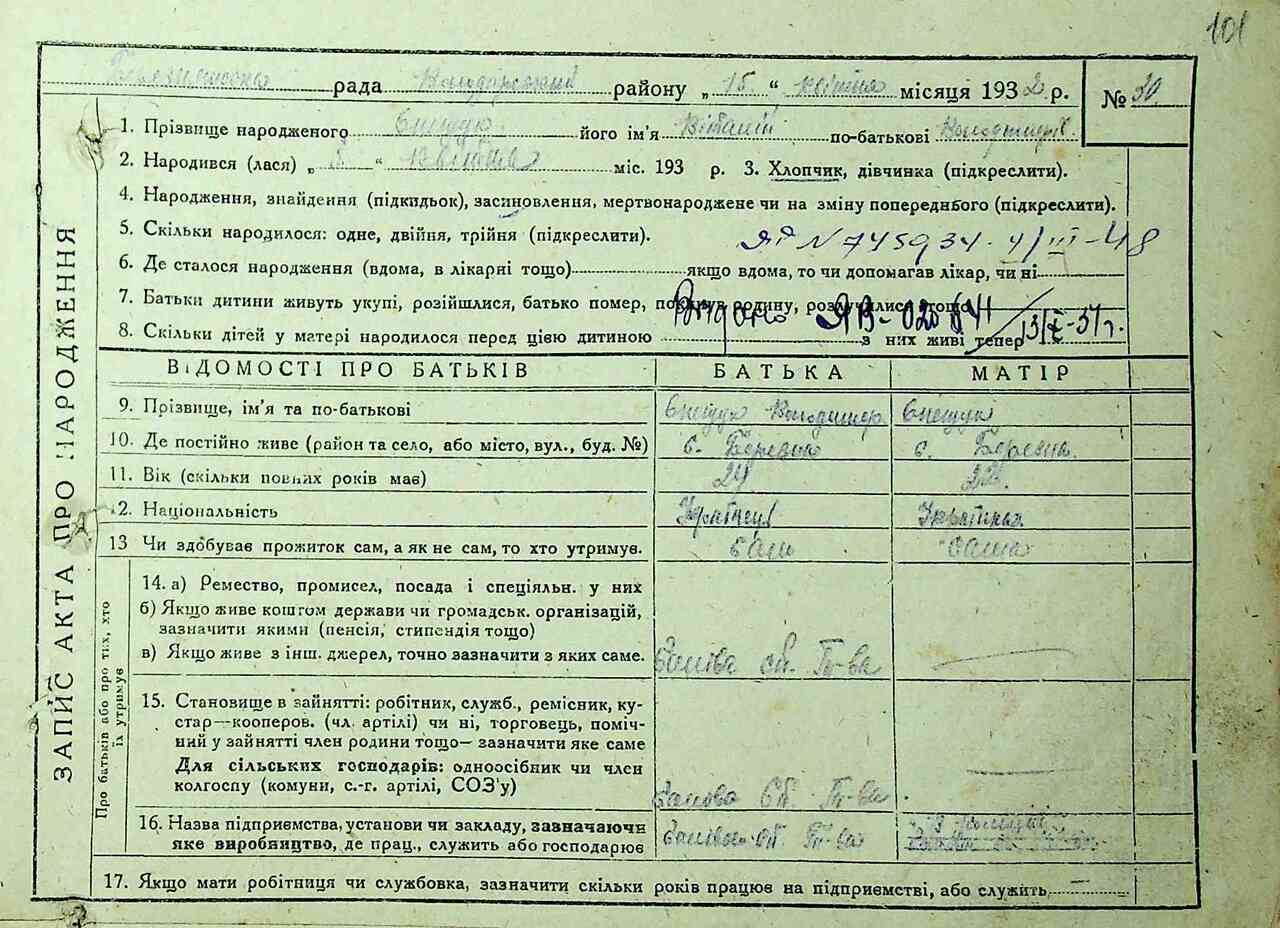 101
рада Володарський району „ 15 “ квітня місяця 1932 р. № 30.
1. Прізвище народженого його ім'я Віталій по-батькові
2. Народився (лася) „ “ міс. 193 р. 3. Хлопчик, дівчинка (підкреслити).
4. Народження, знайдення (підкидьок), засиновлення, мертвонароджене чи на зміну попереднього (підкреслити).
5. Скільки народилося: одне, двійня, трійня (підкреслити).
ЯР N 745934. 4/III-48
6. Де сталося народження (вдома, в лікарні тощо) якщо вдома, то чи допомагав лікар, чи ні
7. Батьки дитини живуть укупі, розійшлися, батько помер, покинув родину, розлучилися тощо
Видано ЯВ-02
8. Скільки дітей у матері народилося перед цією дитиною з них живі тепер
ВІДОМОСТІ ПРО БАТЬКІВ БАТЬКА МАТІР
9. Прізвище, ім'я та по-батькові Володимир
10. Де постійно живе (район та село, або місто, вул., буд. №) с. с.
11. Вік (скільки повних років має) 24
12. Національність Українець Українка
13 Чи здобуває прожиток сам, а як не сам, то хто утримує. сам сама
Про батьків або про тих, хто їх утримує
14. а) Ремество, промисел, посада і спеціяльн. у них
б) Якщо живе коштом держави чи громадськ. організацій,
зазначити якими (пенсія, стипендія тощо)
в) Якщо живе з інш. джерел, точно зазначити з яких саме.
15. Становище в зайнятті: робітник, служб., ремісник, ку-
стар—кооперов. (чл. артілі) чи ні, торговець, поміч-
ний у зайнятті член родини тощо— зазначити яке саме
Для сільських господарів: одноосібник чи член
колгоспу (комуни, с.-г. артілі, СОЗ'у)
16. Назва підприємства, установи чи закладу, зазначаючи
яке виробництво, де прац., служить або господарює
17. Якщо мати робітниця чи службовка, зазначити скільки років працює на підприємстві, або служить —
ЗАПИС АКТА ПРО НАРОДЖЕННЯ